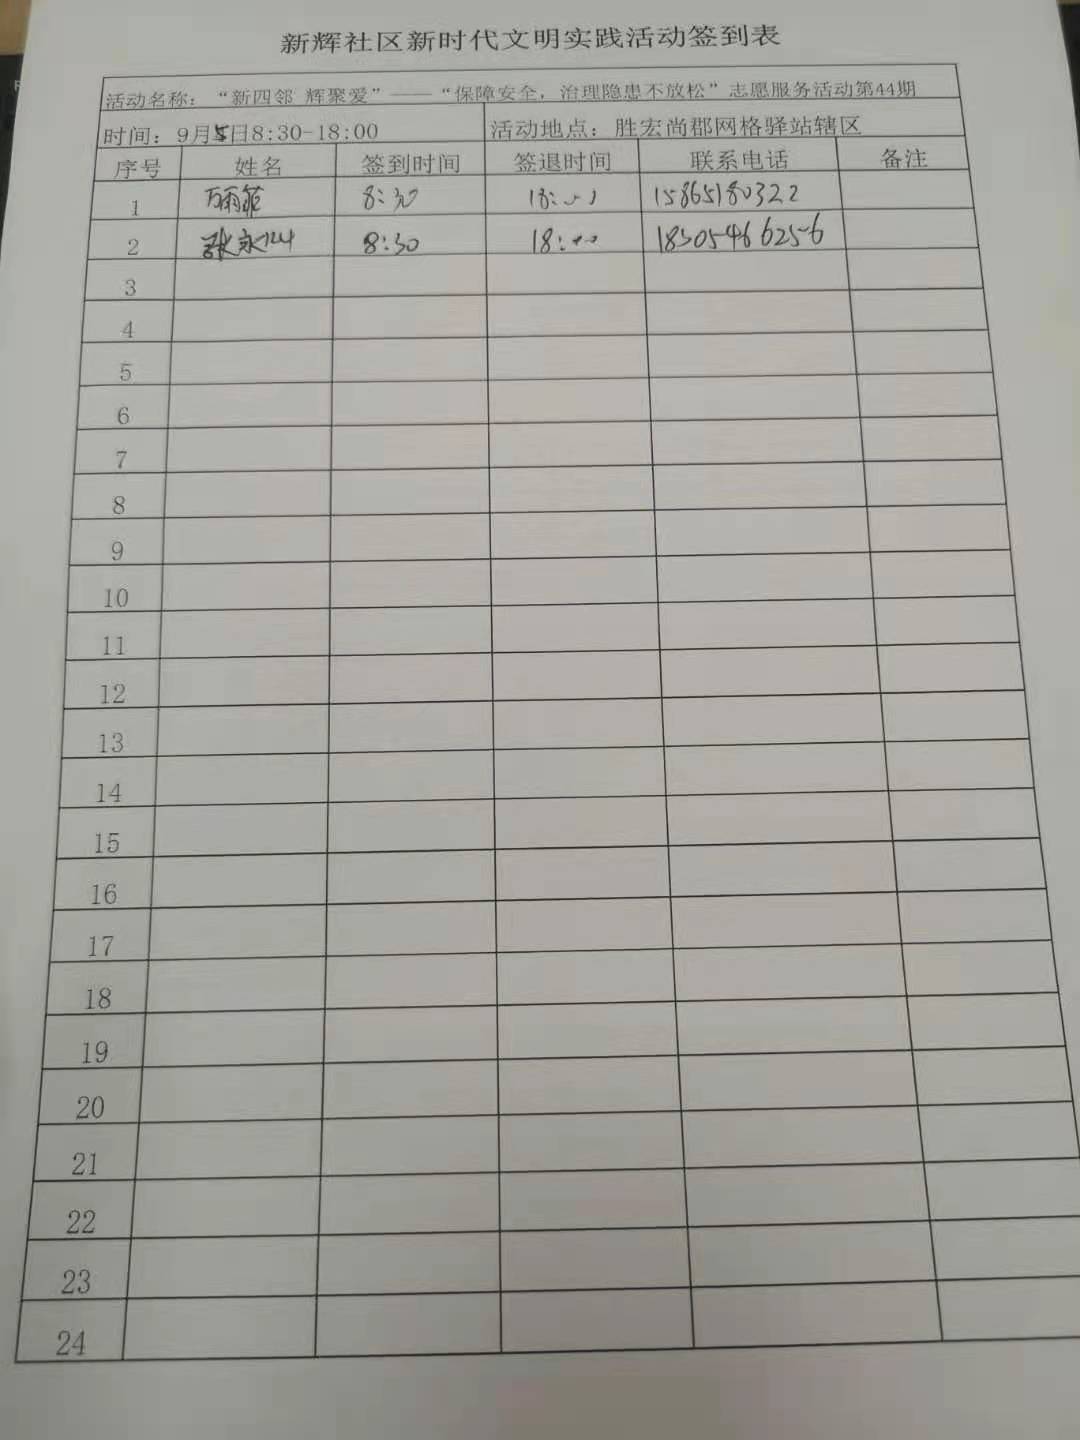 新辉社区新时代文明实践活动签到表
活动名称：“新四邻 辉聚爱”——“保障安全，治理隐患不放松”志愿服务活动第44期
时间：9月5日8:30-18:00 活动地点：胜宏尚郡网格驿站辖区
序号 姓名 签到时间 签退时间 联系电话 备注
1 8:30 18:00 15865180322
2 8:30 18:00 18305466256
3
4
5
6
7
8
9
10
11
12
13
14
15
16
17
18
19
20
21
22
23
24